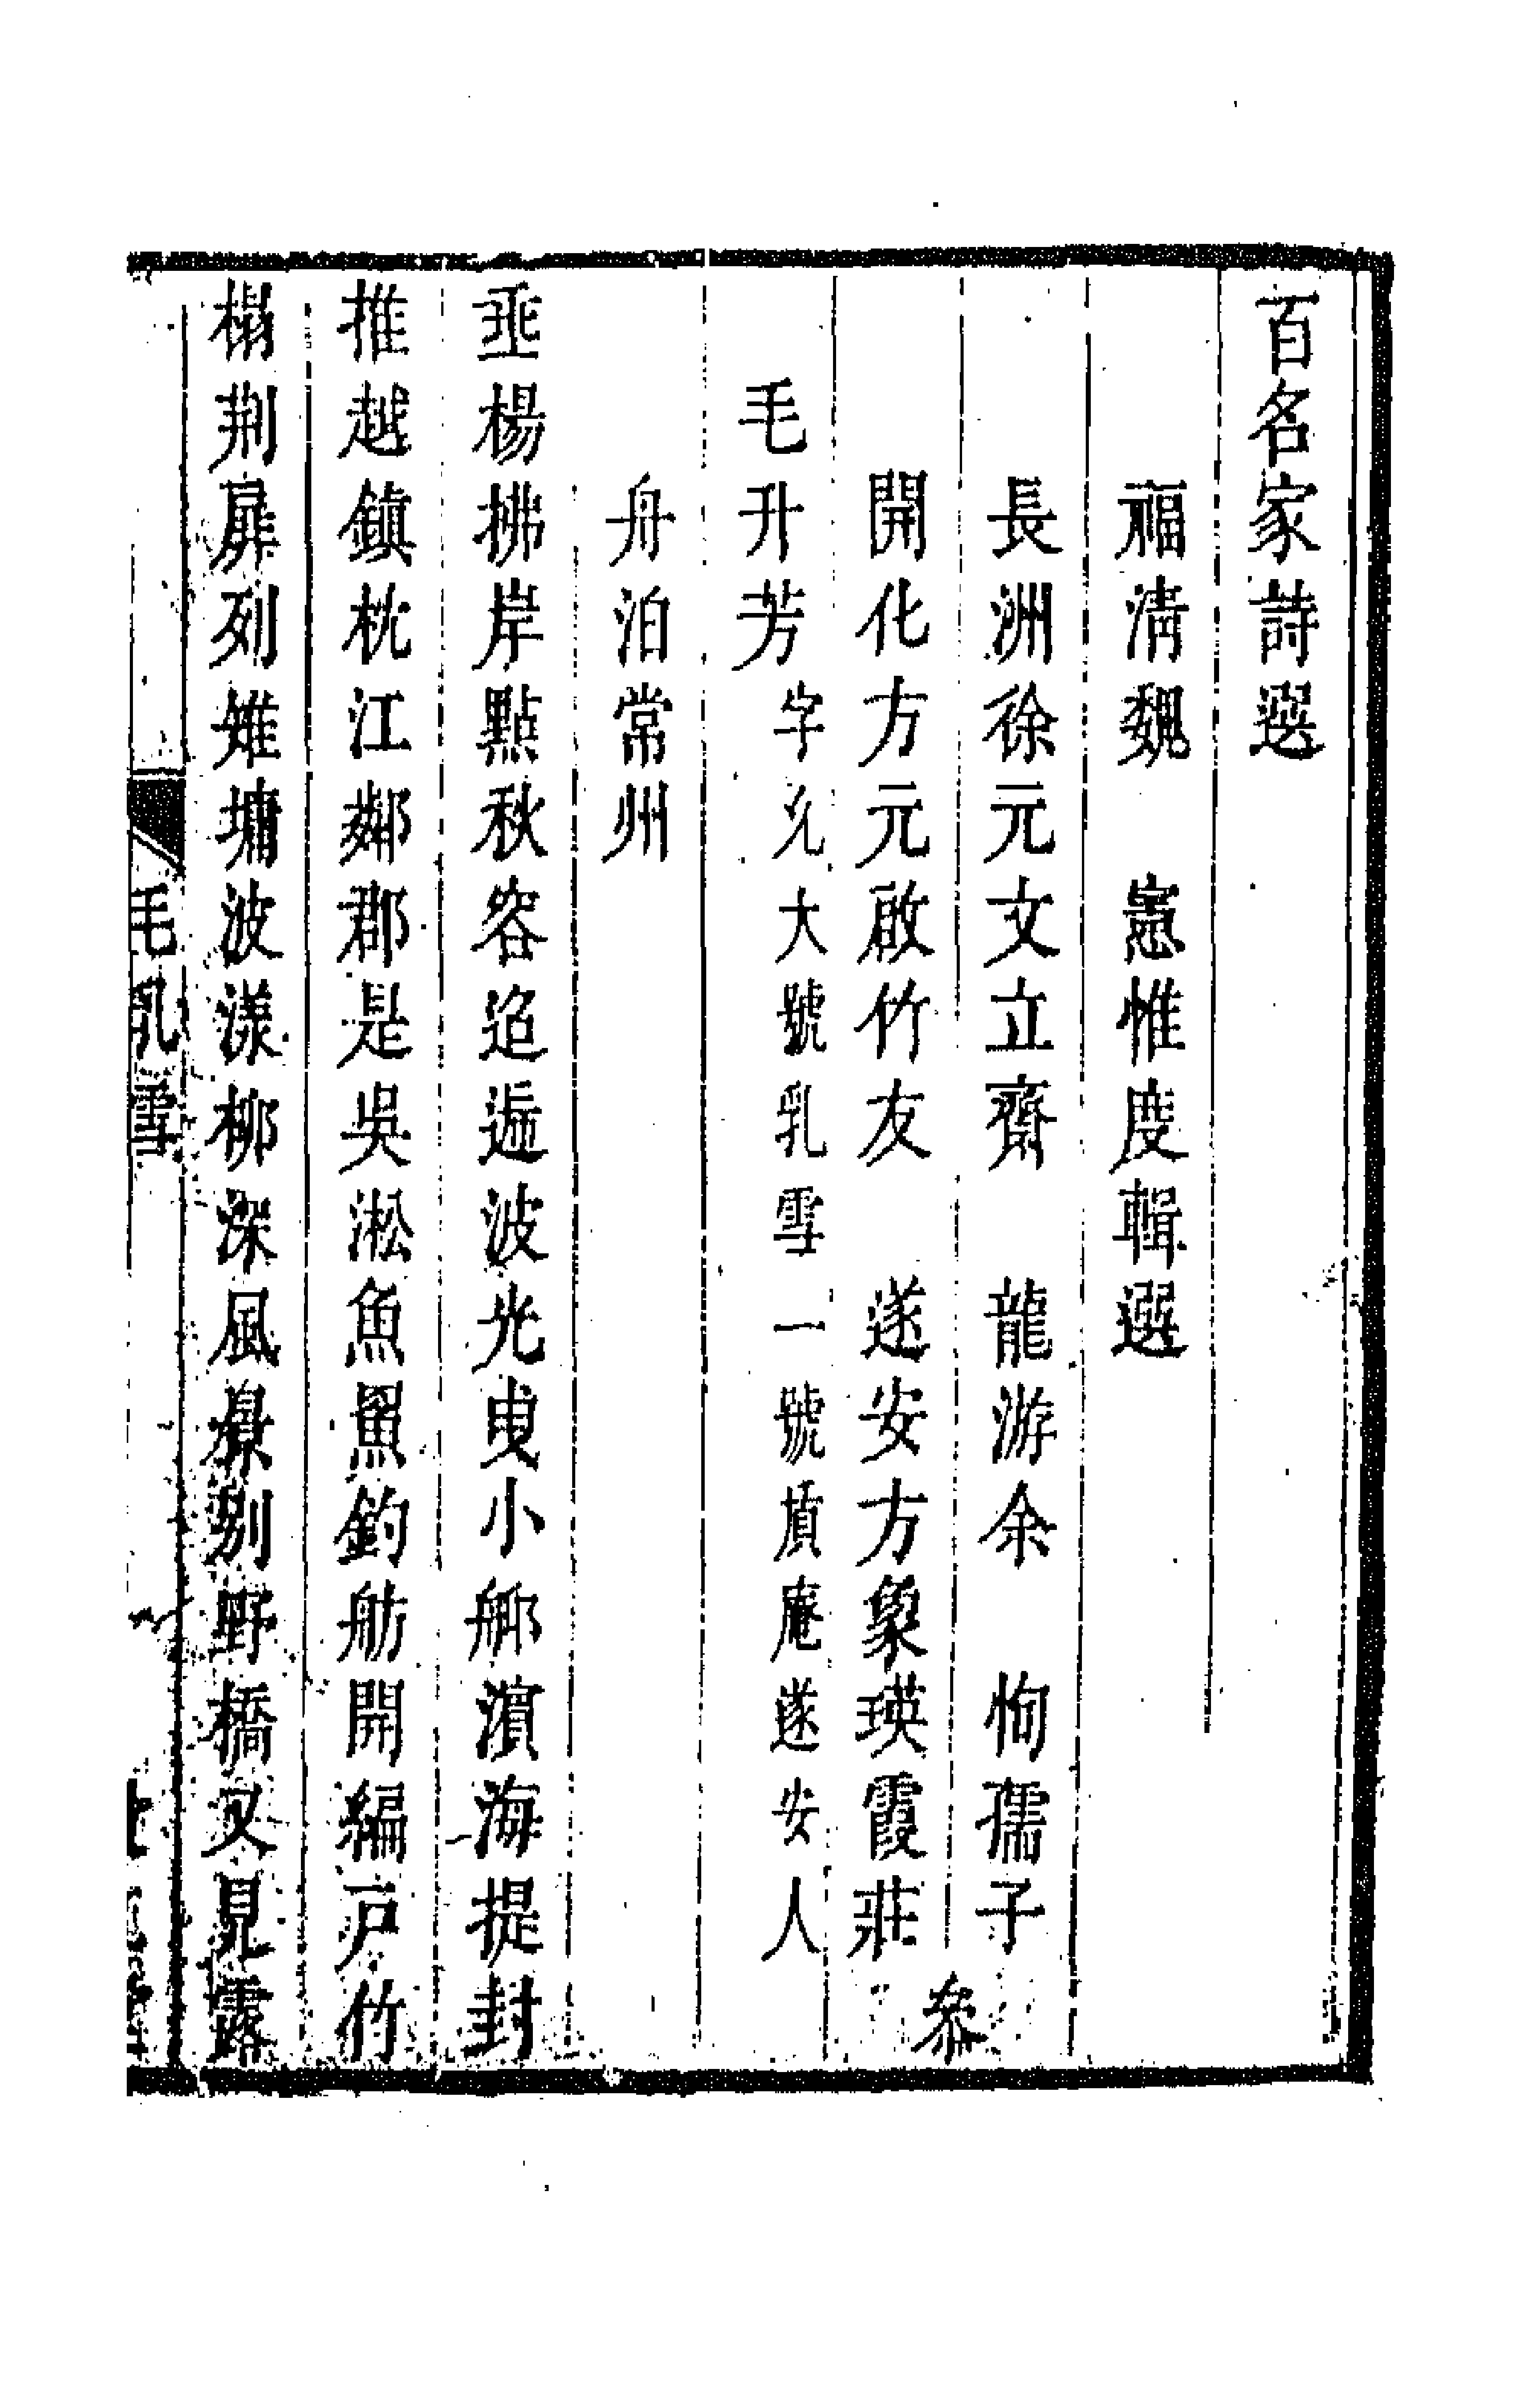 百名家詩選
福清魏　憲惟度輯選
長洲徐元文立齋　龍游余　恂孺子
開化方元啟竹友　遂安方象瑛霞莊
叅
毛升芳字允大號乳雪一號䪴庵遂安人
舟泊常州
垂楊拂岸點秋容迢遞波光曳小艖濵海提封
推越鎮枕江鄰郡是吳淞魚罾釣舫開編戶竹
榻荆扉列雉墉波漾柳深風景别野橋又見露
毛乳雪